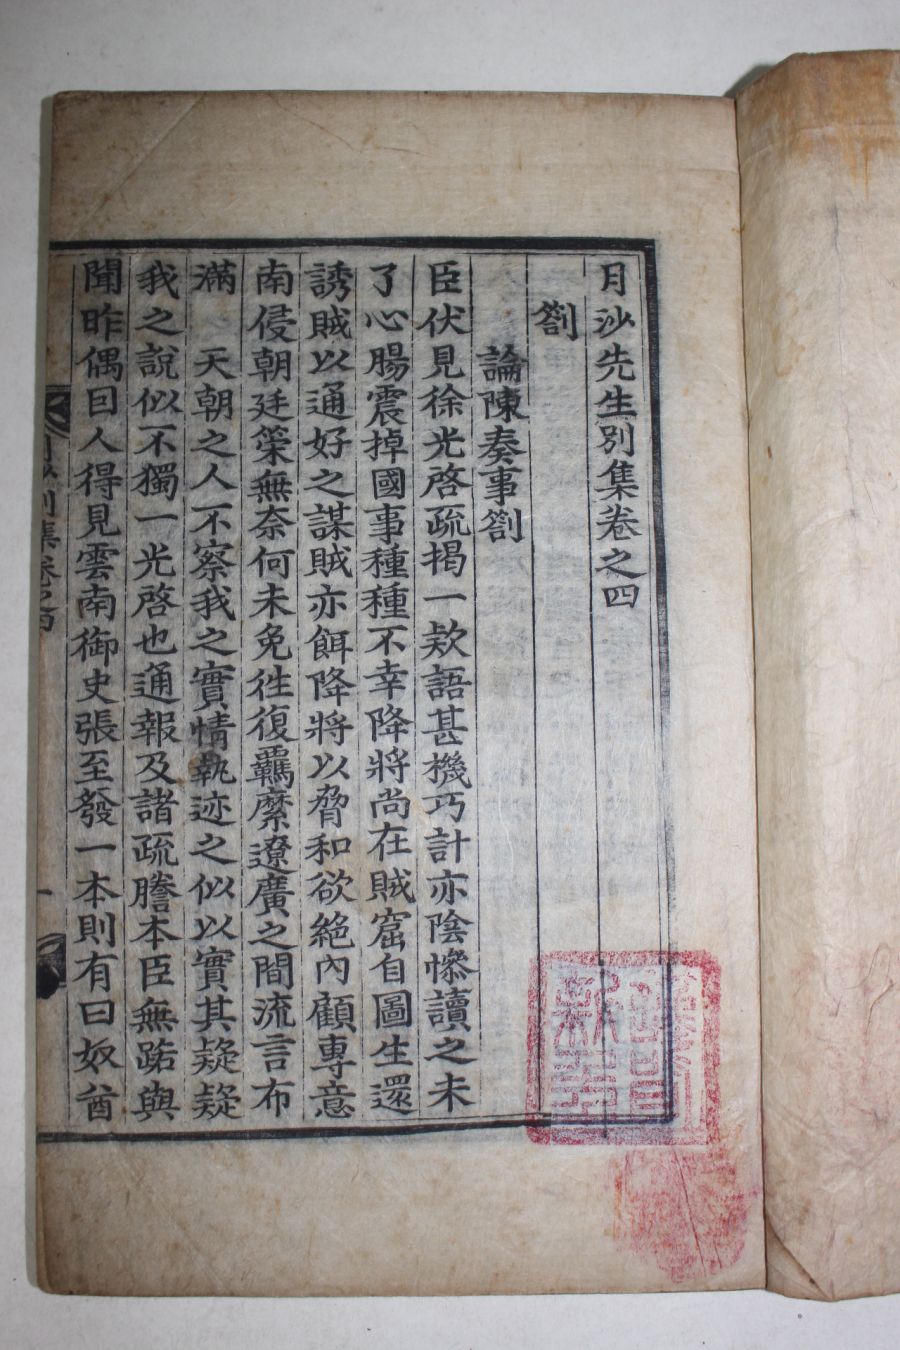 月沙先生別集卷之四
劄
論陳奏事劄
臣伏見徐光啓疏揭一欵語甚機巧計亦陰慘讀之未
了心腸震掉國事種種不幸降將尙在賊窟自圖生還
誘賊以通好之謀賊亦餌降將以脅和欲絶內顧專意
南侵朝廷策無奈何未免徃復羈縻遼廣之間流言布
滿 天朝之人不察我之實情執迹之似以實其疑疑
我之說似不獨一光啓也通報及諸疏謄本臣無路與
聞昨偶因人得見雲南御史張至發一本則有曰奴酋